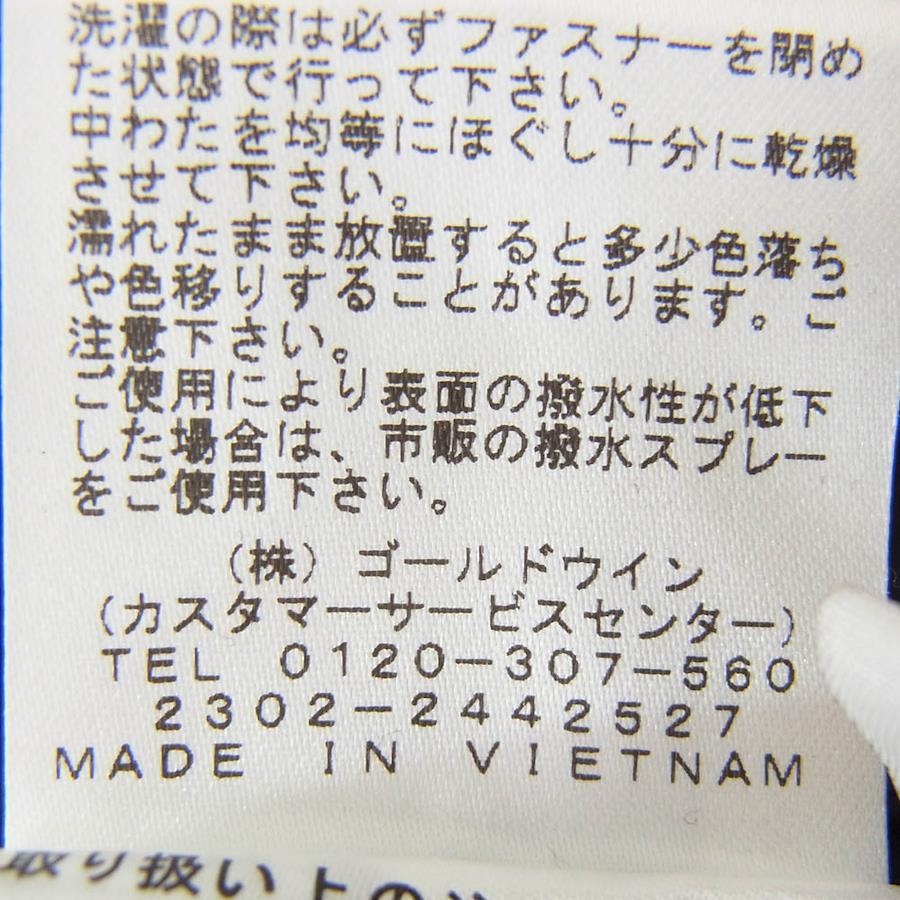 洗濯の際は必ずファスナーを閉め
た状態で行って下さい。
中わたを均等にほぐし十分に乾燥
させて下さい。
濡れたまま放置すると多少色落ち
や色移りすることがあります。ご
注意下さい。
ご使用により表面の撥水性が低下
した場合は、市販の撥水スプレー
をご使用下さい。
(株)ゴールドウイン
(カスタマーサービスセンター)
TEL 0120-307-560
2302-2442527
MADE IN VIETNAM
取り扱い上の注